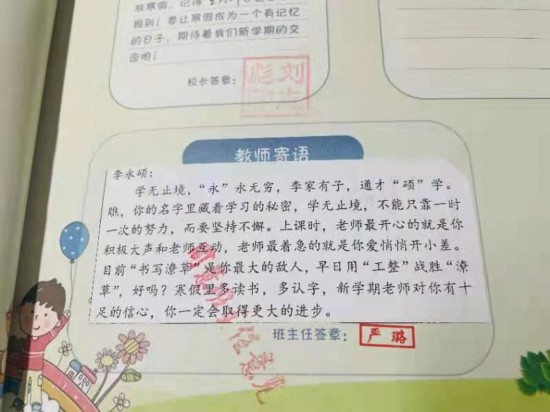 放寒假，记得
规则！要让寒假成为一个有记忆
的日子，期待着我们新学期的交
流哈！
校长签章：
教师寄语
李永硕：
学无止境，“永”永无穷，李家有子，通才“硕”学。
瞧，你的名字里藏着学习的秘密，学无止境，不能只靠一时
一次的努力，而要坚持不懈。上课时，老师最开心的就是你
积极大声和老师互动，老师最着急的就是你爱悄悄开小差。
目前“书写潦草”是你最大的敌人，早日用“工整”战胜“潦
草”，好吗？寒假里多读书，多认字，新学期老师对你有十
足的信心，你一定会取得更大的进步。
班主任签章：
严璐